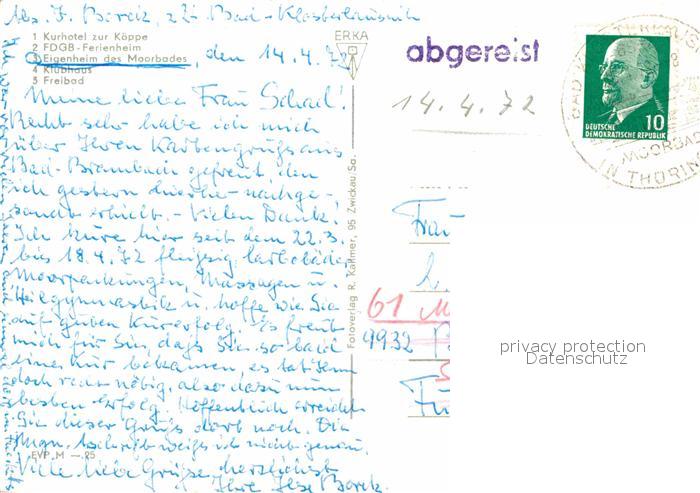 Abs. J. Borck, zZ. Bad-Klosterlausnitz
1 Kurhotel zur Köppe
2 FDGB-Ferienheim
3 Eigenheim des Moorbades
4 Klubhaus
3 Freibad
ERKA
den 14.4.72
abgereist
14.4.72
10
DEUTSCHE
DEMOKRATISCHE REPUBLIK
MOORBAD
IN THÜRIN
Meine liebe Frau Schad!
Recht sehr habe ich mich
über Ihren Kartengruß aus
Bad-Brambach gefreut, den
ich gestern hierher nachge-
sandt erhielt. - Vielen Dank!
Ich kure hier seit dem 22.3.
bis 18.4.72 fleißig,
Moorpackungen, Massagen u.
Heilgymnastik u. hoffe wie Sie
auf guten Kurerfolg. Es freut
mich für Sie, daß Sie so bald
eine Kur bekamen, es tat Ihnen
doch recht nötig, also dazu nun
besten Erfolg. Hoffentlich erreicht
Sie dieser Gruß dort noch. Die
Anschrift weiß ich nicht genau.
Viele liebe Grüße, herzlichst
Ihre Ilse Borck.
EVP M -.25
Fotoverlag R. Kallmer, 95 Zwickau Sa.
Frau
61 M
9932
privacy protection
Datenschutz